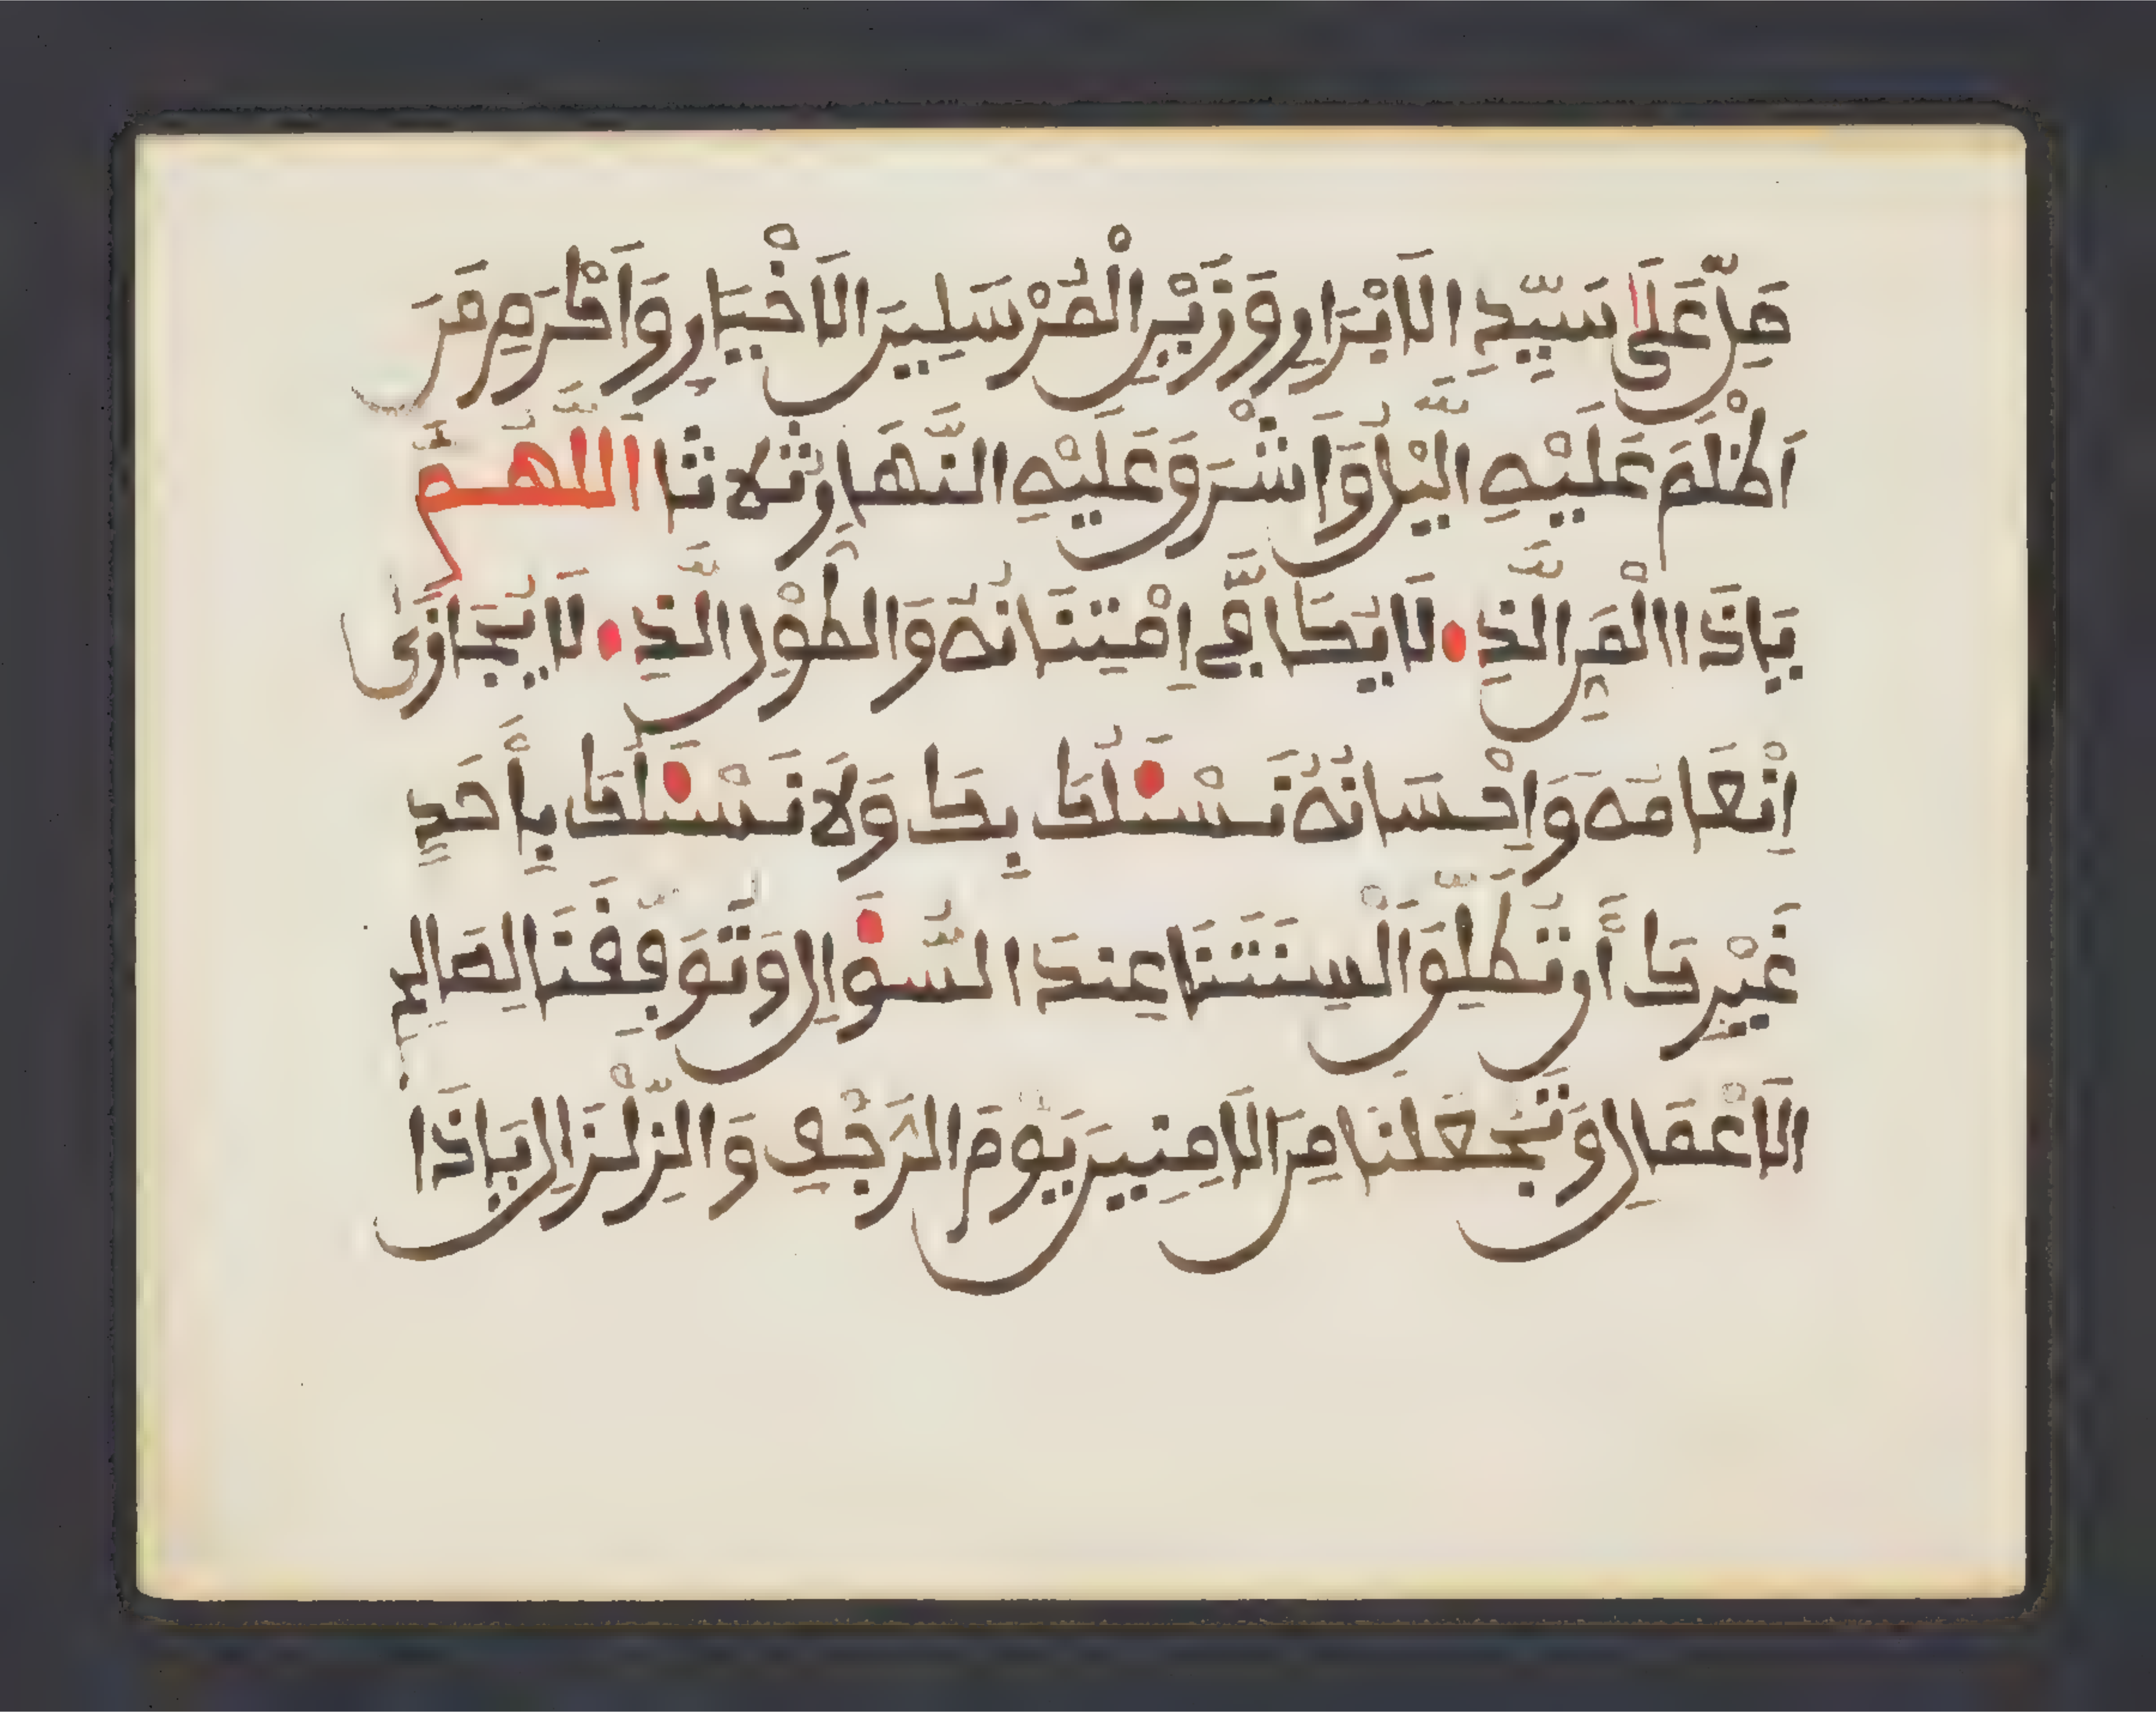 صَلِّ عَلَىٰ سَيِّدِ الَابْرَارِ وَزَيْنِ الْمُرْسَلِينَ الَاخْيَارِ وَأَكْرَمِ مَنَ
اَظْلَمَ عَلَيْهِ اليْلُ وَأَشْرَقَ عَلَيْهِ النَّهَارُ ثلاثا اَللَّهُمَّ
يَاذَا الْمَنِّ الَّذِي لَا يُكَافِىٰ اِمْتِنَانُهُ وَالطَّوْلِ الَّذِي لَا يُجَازَىٰ
اِنْعَامُهُ وَاِحْسَانُهُ نَسْئَلُكَ بِكَ وَلَا نَسْئَلُكَ بِأَحَدٍ
غَيْرِكَ أَن تُطْلِقَ أَلْسِنَتَنَا عِندَ السُّؤَالِ وَتُوَفِّقَنَا لِصَالِحِ
الَاعْمَالِ وَتَجْعَلَنَا مِنَ الَامِنِينَ يَوْمَ الرَّجْفِ وَالزِّلْزَالِ يَاذَا